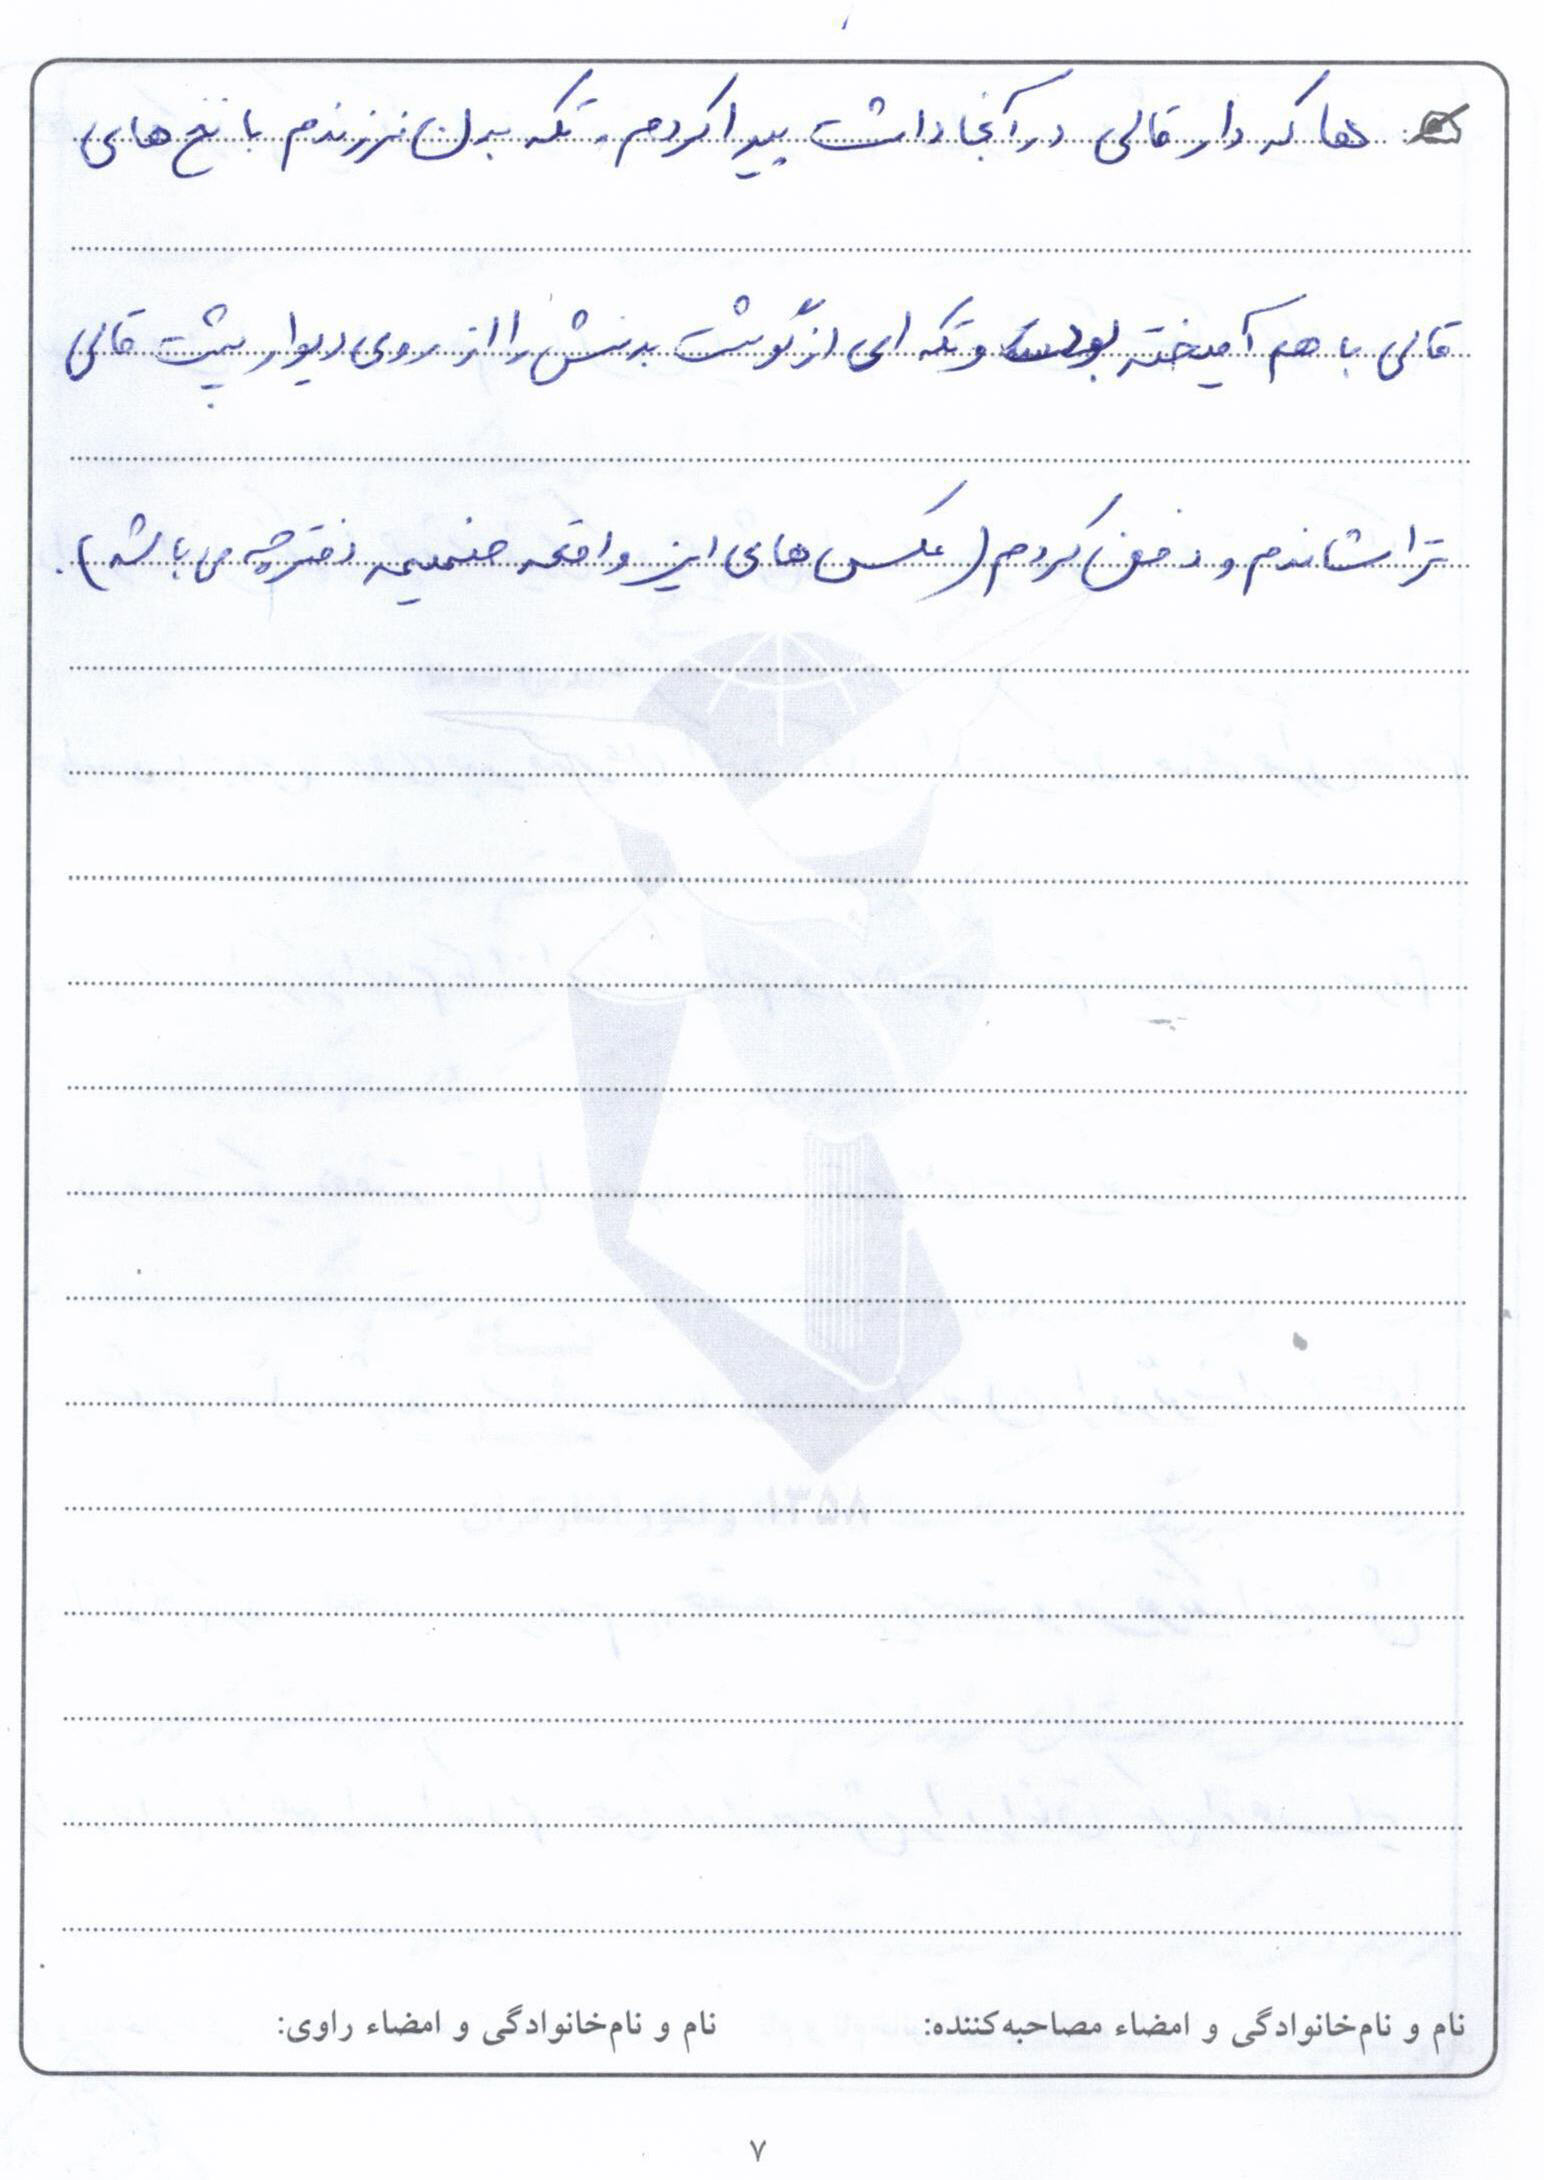 ها که دار قالی در آنجا داشت پیدا کردم. تکه بدن فرزندم با نخ های
قالی با هم آمیخته بود و تکه ای از گوشت بدنش را از روی دیوار پشت قالی
تراشاندم و دفن کردم (عکس های این واقعه ضمیمه دفترچه می باشد).
۱۳۵۸
نام و نام‌خانوادگی و امضاء مصاحبه‌کننده:
نام و نام‌خانوادگی و امضاء راوی:
۷